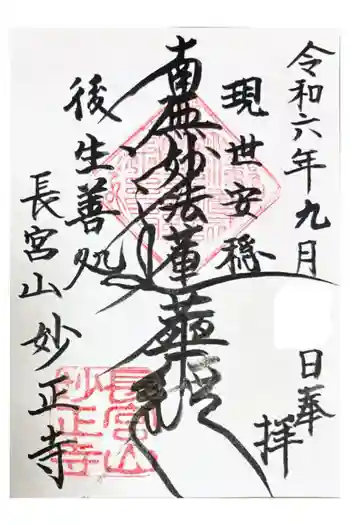 令和六年九月
日奉拝
現世安穏
南無妙法蓮華経
後生善処
長宮山妙正寺
長宮山
妙正寺